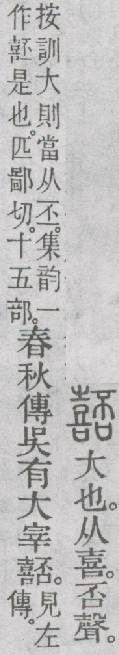 嚭大也。从喜。否聲。
按訓大則當从丕。集韵一
作噽是也。匹鄙切。十五部。
春秋傳吳有大宰嚭。
見左
傳。